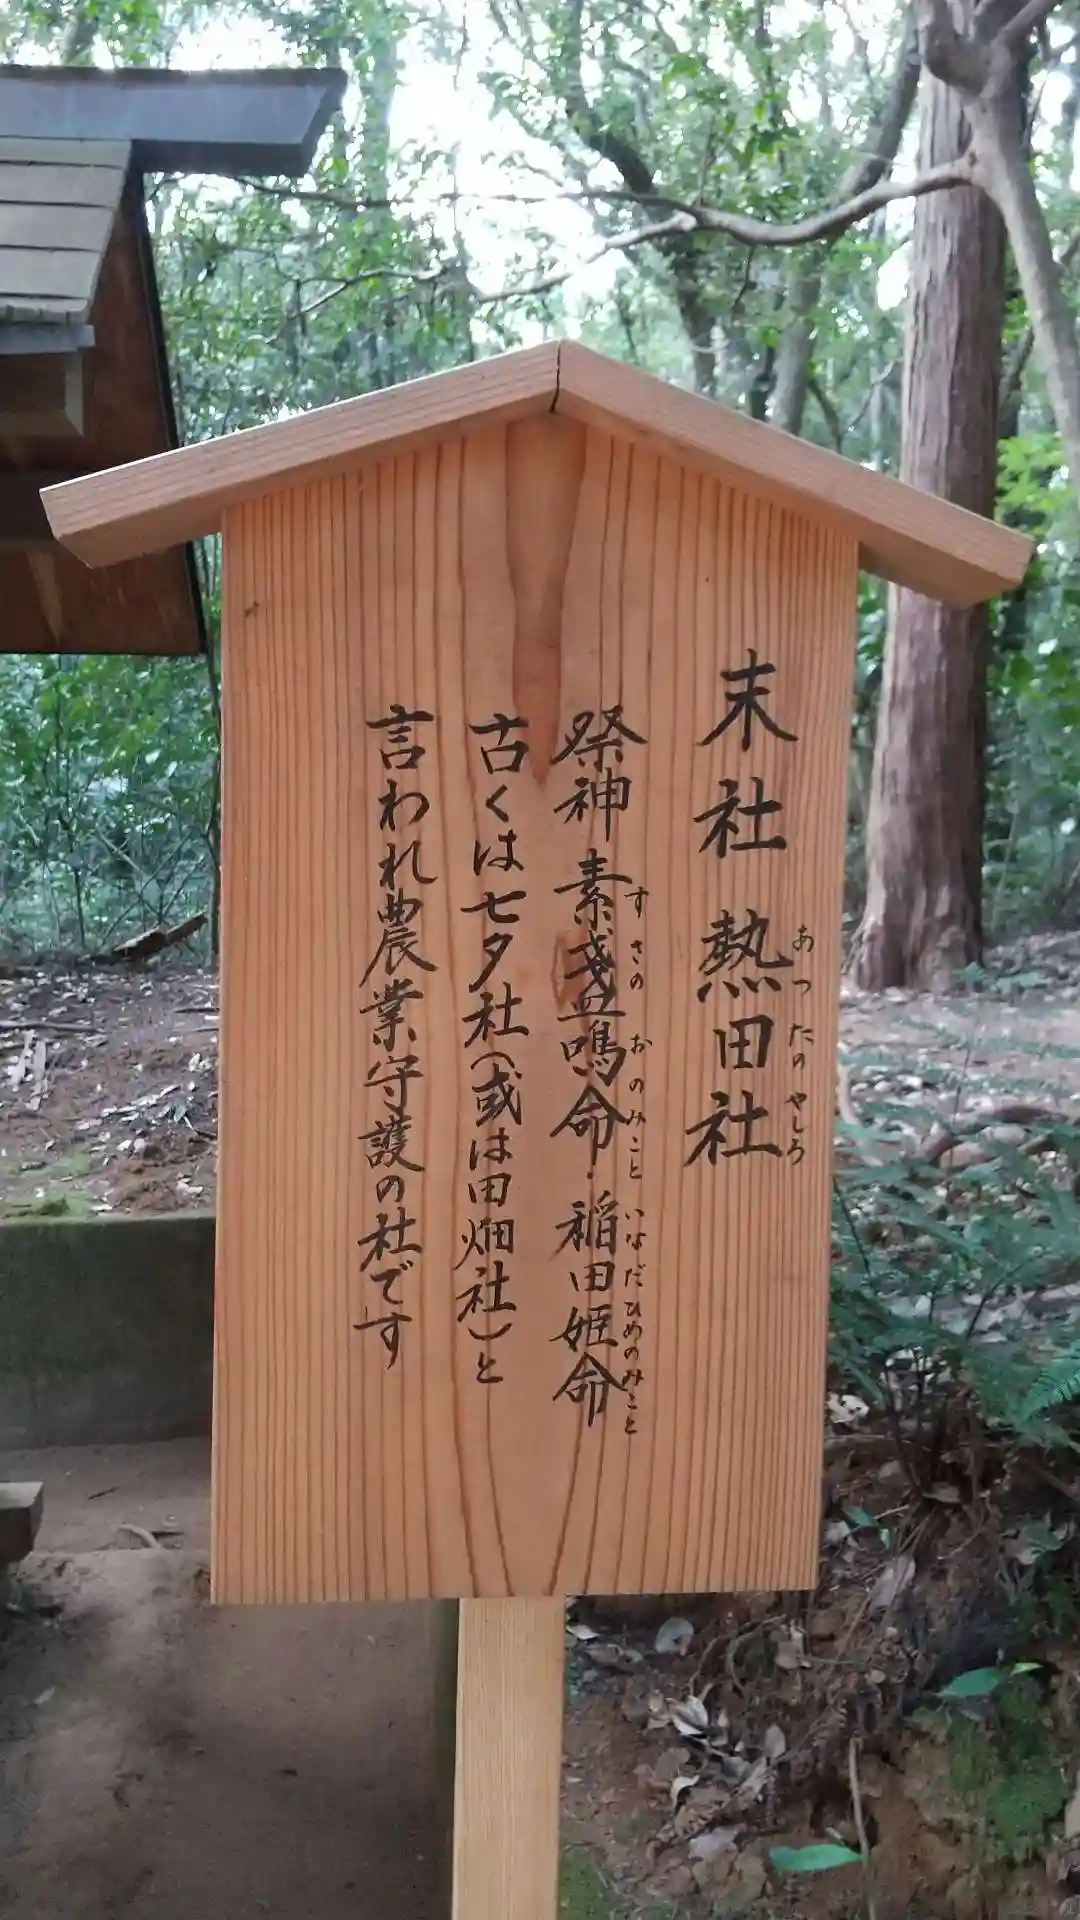 末社 熱田社
あつたのやしろ
祭神 素盞鳴命・稲田姫命
すさのおのみこと いなだひめのみこと
古くは七夕社(或は田畑社)と
言われ農業守護の社です